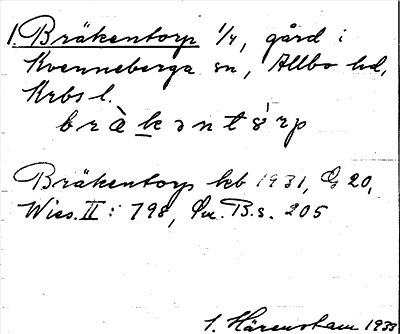 1. Bräkentorp 1/4, gård i
Kvenneberga sn, Allbo hd,
Krbs l.
bràkəntór̀p
Bräkentorp kb 1931, G 20,
Wies. II: 798, Qu. B.s. 205
S. Härenstam 1933